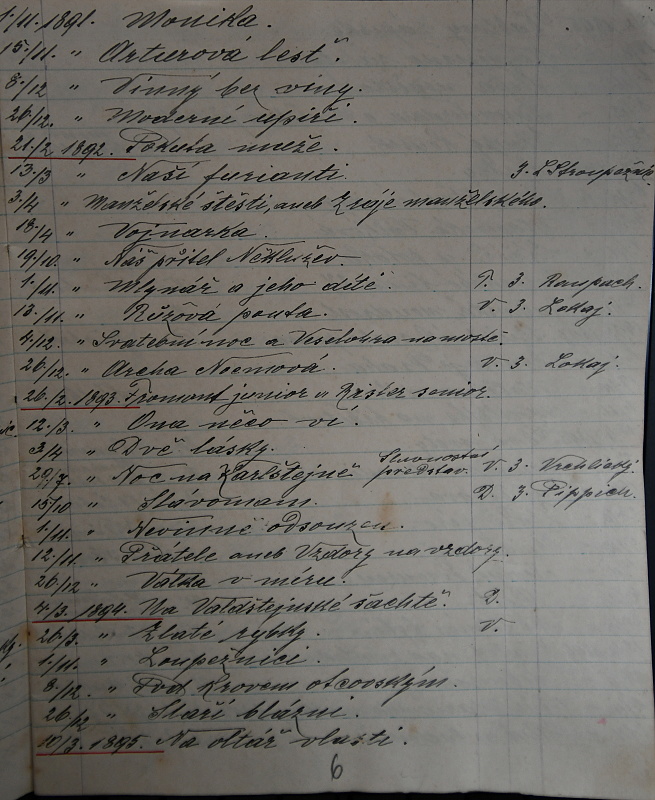 1./11. 1891. Monika.
15./11. " Arturova lest.
8./12 " Vinný bez viny.
26/12. " Moderné upíři.
21./2 1892. Pokuta muže.
13./3 " Naši furianti 3. L Stroupežnic.
3./4 " Manželské štěstí, aneb Zloje manželského.
18./4 " Vojnarka.
19./10. " Náš přítel Někljužev.
1./11. " Mlynář a jeho dítě. T. 3. Raupach.
13./11. " Růžová pouta. V. 3. Lokaj.
4./12. " Svatební noc a Veselohra na mostě.
26/12. " Archa Noemova. V. 3. Lokaj.
26./2. 1893. Fromont junior a Rissler senior.
12./3. " Ona něco ví.
3./4 " Dvě lásky.
20./7. " Noc na Karlštejně Slavnostní představ. V. 3. Vrchlický.
15/10 " Slávomam. D. 3. Pippich.
1./11. " Nevinně odsouzen.
12./11. " Přátelé aneb Vzdory na vzdory.
26./12 " Válka v míru.
4./3. 1894. Na Valdštejnské šachtě. D.
26/3. " Zlaté rybky. V.
1./11. " Loupežníci.
8./12. " Pod krovem otcovským.
26./12 " Staří blázni.
10/3. 1895. Na oltář vlasti.
6